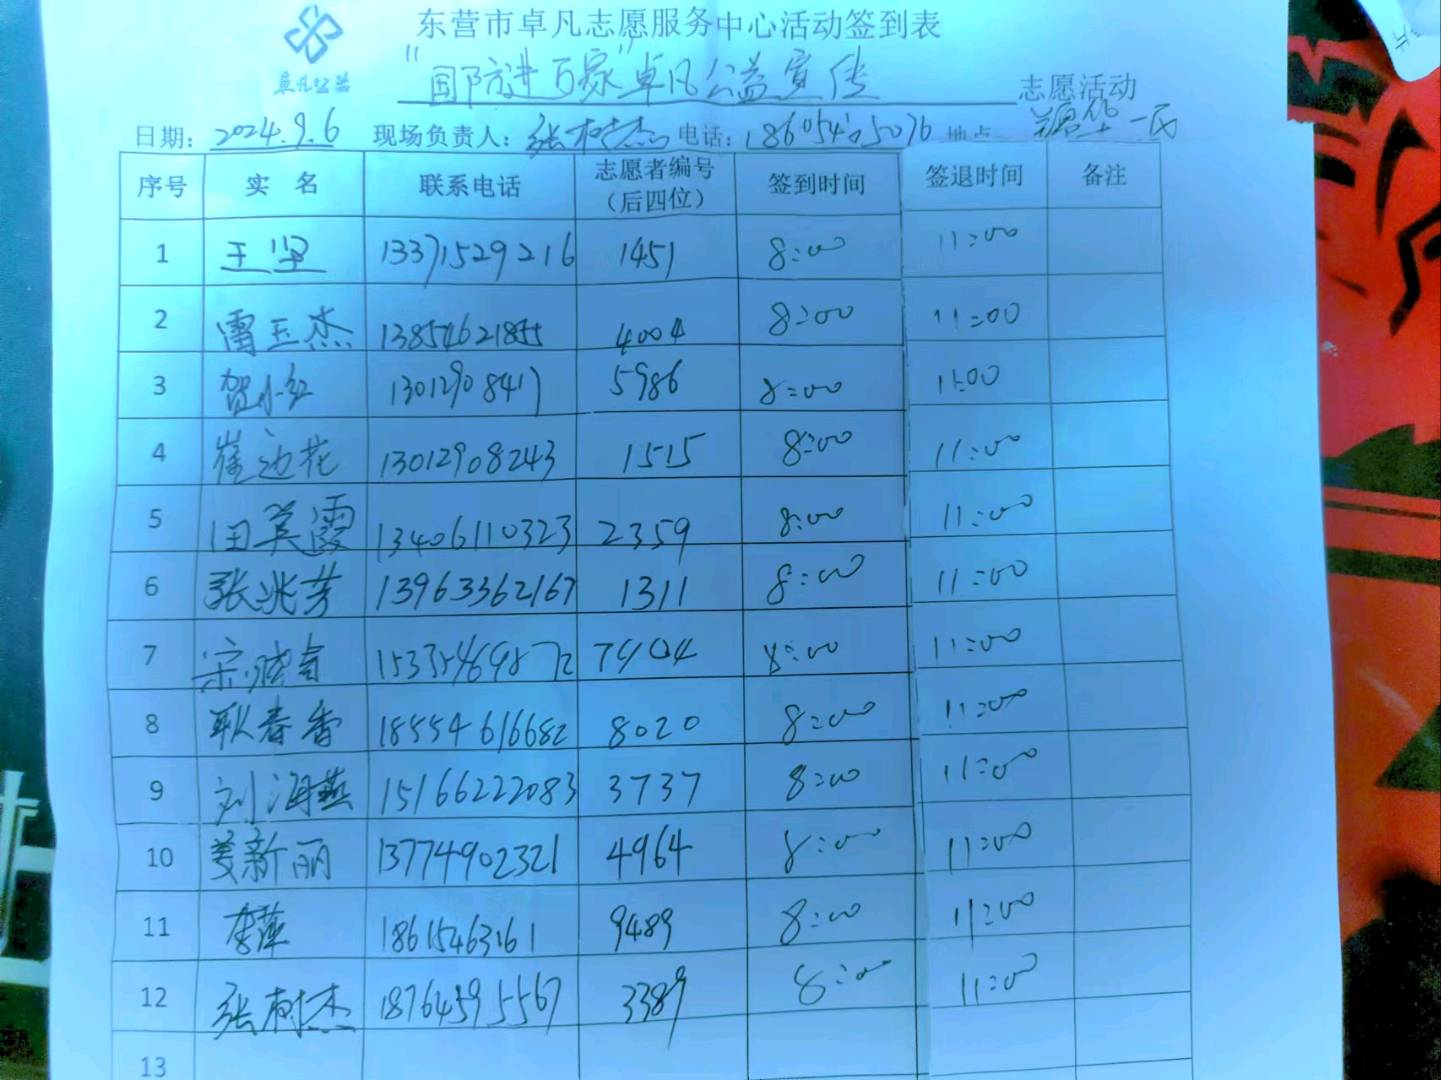 东营市卓凡志愿服务中心活动签到表
卓凡公益
"国防进万家"卓凡公益宣传 志愿活动
日期: 2024.9.6 现场负责人: 张树杰 电话: 地点
序号 实名 联系电话 志愿者编号（后四位） 签到时间 签退时间 备注
1 王坚 13371529216 1451 8:00 11:00
2 雷玉杰 4004 8:00 11:00
3 贺小红 13012908417 5986 8:00 11:00
4 崔边花 13012908243 1515 8:00 11:00
5 田英霞 13406110323 2359 8:00 11:00
6 张兆芳 13963362167 1311 8:00 11:00
7 15335469872 7904 8:00 11:00
8 耿春香 18554616682 8020 8:00 11:00
9 刘海燕 15166222083 3737 8:00 11:00
10 姜新丽 13774902321 4964 8:00 11:00
11 李萍 18615463161 9489 8:00 11:00
12 张树杰 18764595567 3389 8:00 11:00
13